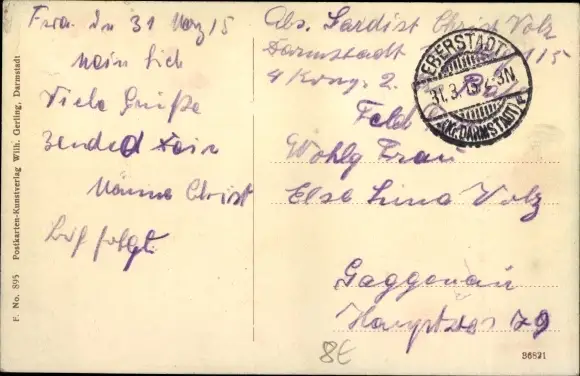 Fra. den 31 März 15
Mein Lieb
Viele Grüße
sended Dein
Männe Christ
Brf folgt.
Abs. Gardist Christ Volz
Darmstadt 115
4 Komp. 2.
Feld
Wohlg Frau
Else Luna Volz
Gaggenau
Hauptstras 79
EBERSTADT
31.3.15 4-5N
(KR. DARMSTADT)
F. No. 895 Postkarten-Kunstverlag Wilh. Gerling, Darmstadt
36821
8E